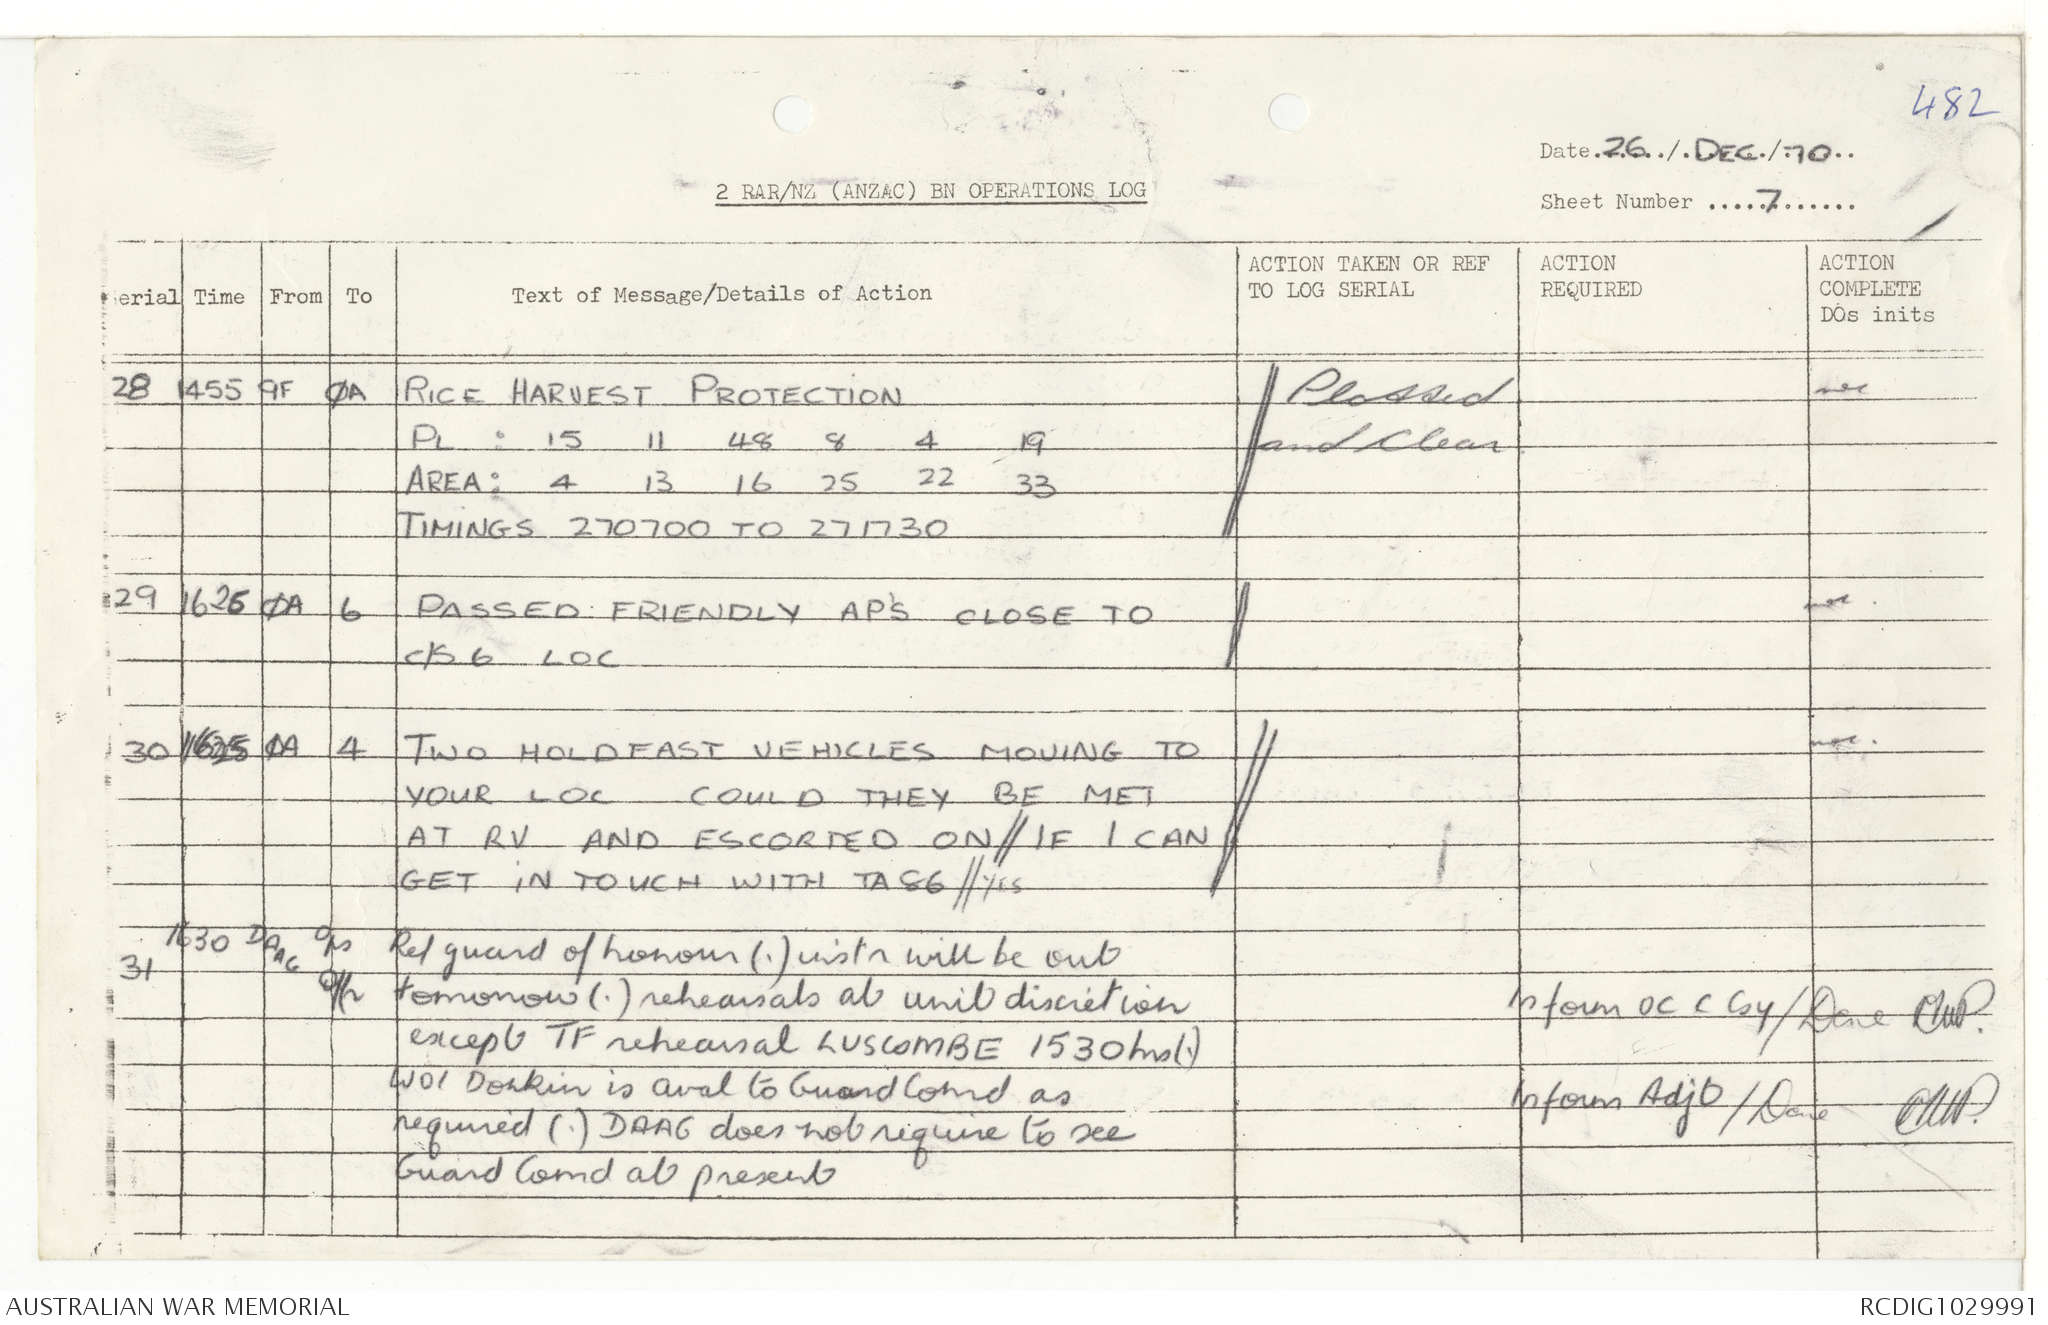 482
Date 26 / DEC / 70
2 RAR/NZ (ANZAC) BN OPERATIONS LOG
Sheet Number 7
Serial Time From To Text of Message/Details of Action ACTION TAKEN OR REF TO LOG SERIAL ACTION REQUIRED ACTION COMPLETE DOs inits
28 1455 9F ØA RICE HARVEST PROTECTION // Plotted
PL : 15 11 48 8 4 19 and Clear
AREA: 4 13 16 25 22 33
TIMINGS 270700 TO 271730
29 1625 ØA 6 PASSED FRIENDLY AP'S CLOSE TO
C/S 6 LOC
30 1625 ØA 4 TWO HOLDFAST VEHICLES MOVING TO
YOUR LOC COULD THEY BE MET
AT RV AND ESCORTED ON // IF I CAN
GET IN TOUCH WITH TA 86 // YES
31 1630 DAAG Ops Offr Ref guard of honour (.) instr will be out
tomorrow (.) rehearsals at unit discretion Inform OC C Coy / Done
except TF rehearsal LUSCOMBE 1530hrs (.)
WO1 Donkin is aval to Guard Comd as Inform Adjt / Done
required (.) DAAG does not require to see
Guard Comd at present
AUSTRALIAN WAR MEMORIAL RCDIG1029991